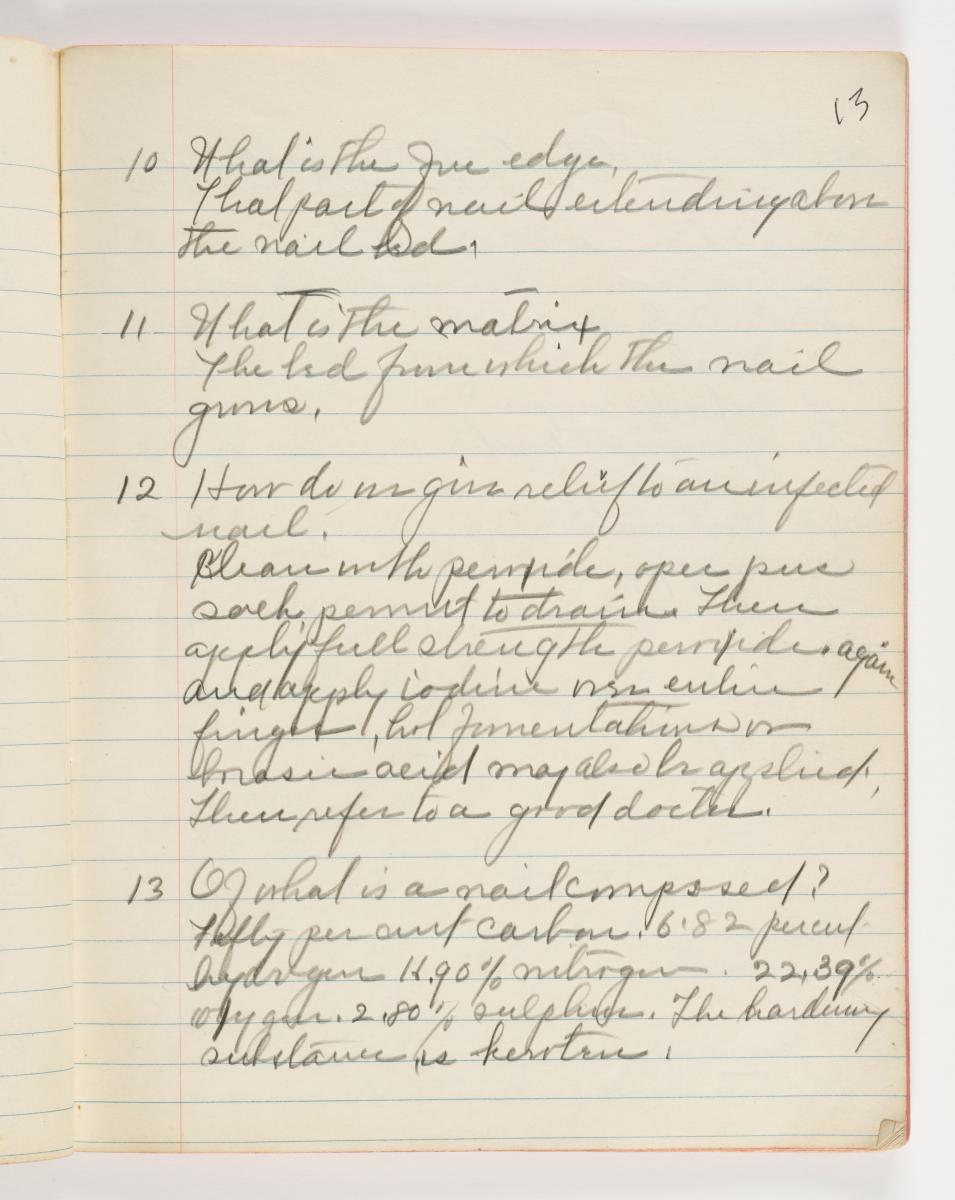 13
10 What is the free edge.
That part of nail extending above
the nail bed.
11 What is the matrix
The bed from which the nail
grows.
12 How do we give relief to an infected
nail.
Clean with peroxide, open pus
sack, permit to drain. Then
apply full strength peroxide. again
and apply iodine over entire
finger, hot fomentations or
borasic acid may also be applied,
Then refer to a good doctor.
13 Of what is a nail composed?
Fifty per cent carbon. 6.82 percent
hydrogen 16.90% nitrogen. 22.39%
oxygen. 2.80% sulphur. The hardening
substance is kerotin.